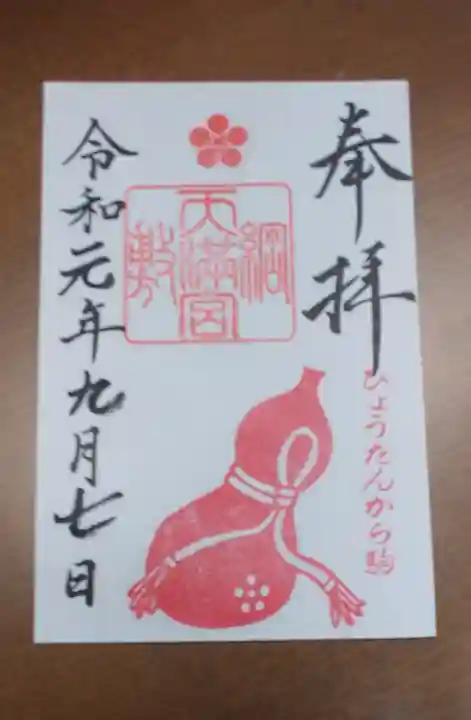 奉拝
ひょうたんから駒
綱敷天満宮
令和元年九月七日